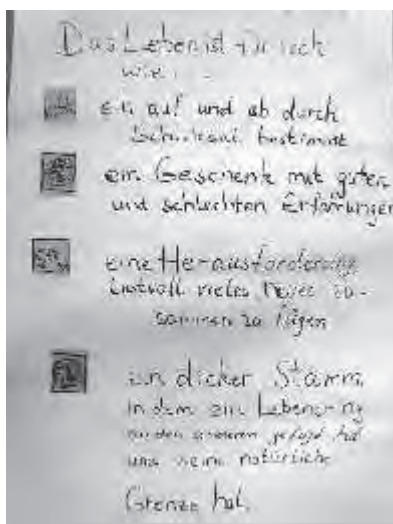 Das Leben ist für mich
wie...
ein auf und ab durch
Schicksal bestimmt
ein Geschenk mit guten
und schlechten Erfahrungen
eine Herausforderung
vieles zu-
sammen zu fügen
ein dicker Stamm
in dem ein Lebensring
an den anderen gefügt hat
und seine natürliche
Grenze hat.